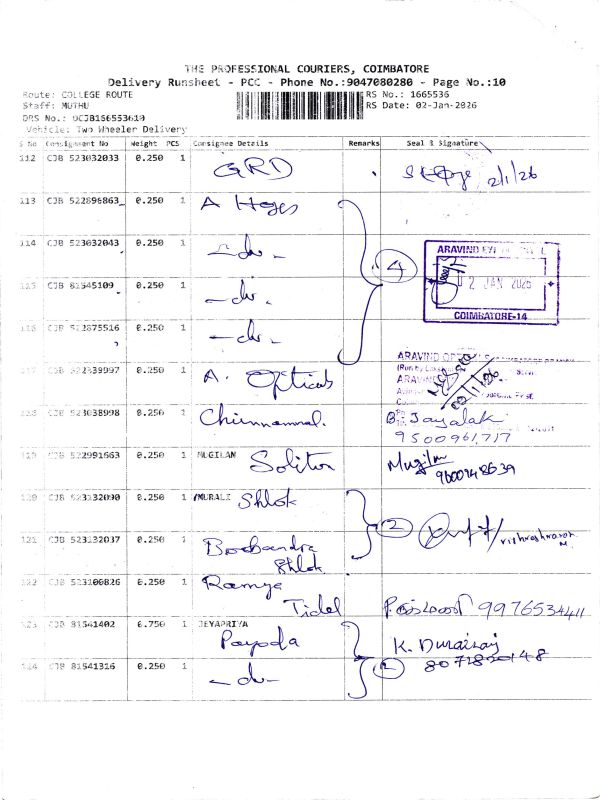 THE PROFESSIONAL COURIERS, COIMBATORE
Delivery Runsheet - PCC - Phone No.:9047080280 - Page No.:10
Route: COLLEGE ROUTE
RS No.: 1665536
Staff: MUTHU
RS Date: 02-Jan-2026
DRS No.: OCJB166553610
Vehicle: Two Wheeler Delivery
S No Consignment No Weight PCS Consignee Details Remarks Seal & Signature
112 CJB 523032033 0.250 1 GRD 2/1/26
113 CJB 522896863 0.250 1 A
114 CJB 523032043 0.250 1 -do-
4
ARAVIND
2 JAN 2026
COIMBATORE-14
115 CJB 81545109 0.250 1 -do-
116 CJB 522875516 0.250 1 -do-
117 CJB 522839997 0.250 1 A. Opticals
ARAVIND
02/1/26
118 CJB 523038998 0.250 1 Chinnammal.
B. Jayalak
9500961717
119 CJB 522991663 0.250 1 MUGILAN Soliton
9600948639
120 CJB 523132090 0.250 1 /MURALI Shlok
2
121 CJB 523132037 0.250 1
Shlok
122 CJB 523100826 0.250 1 Ramya
Tidel
9976534411
123 CJB 81541402 0.750 1 JEYAPRIYA
Payoda
K. Duraisaj
8071820148
124 CJB 81541316 0.250 1 -do-